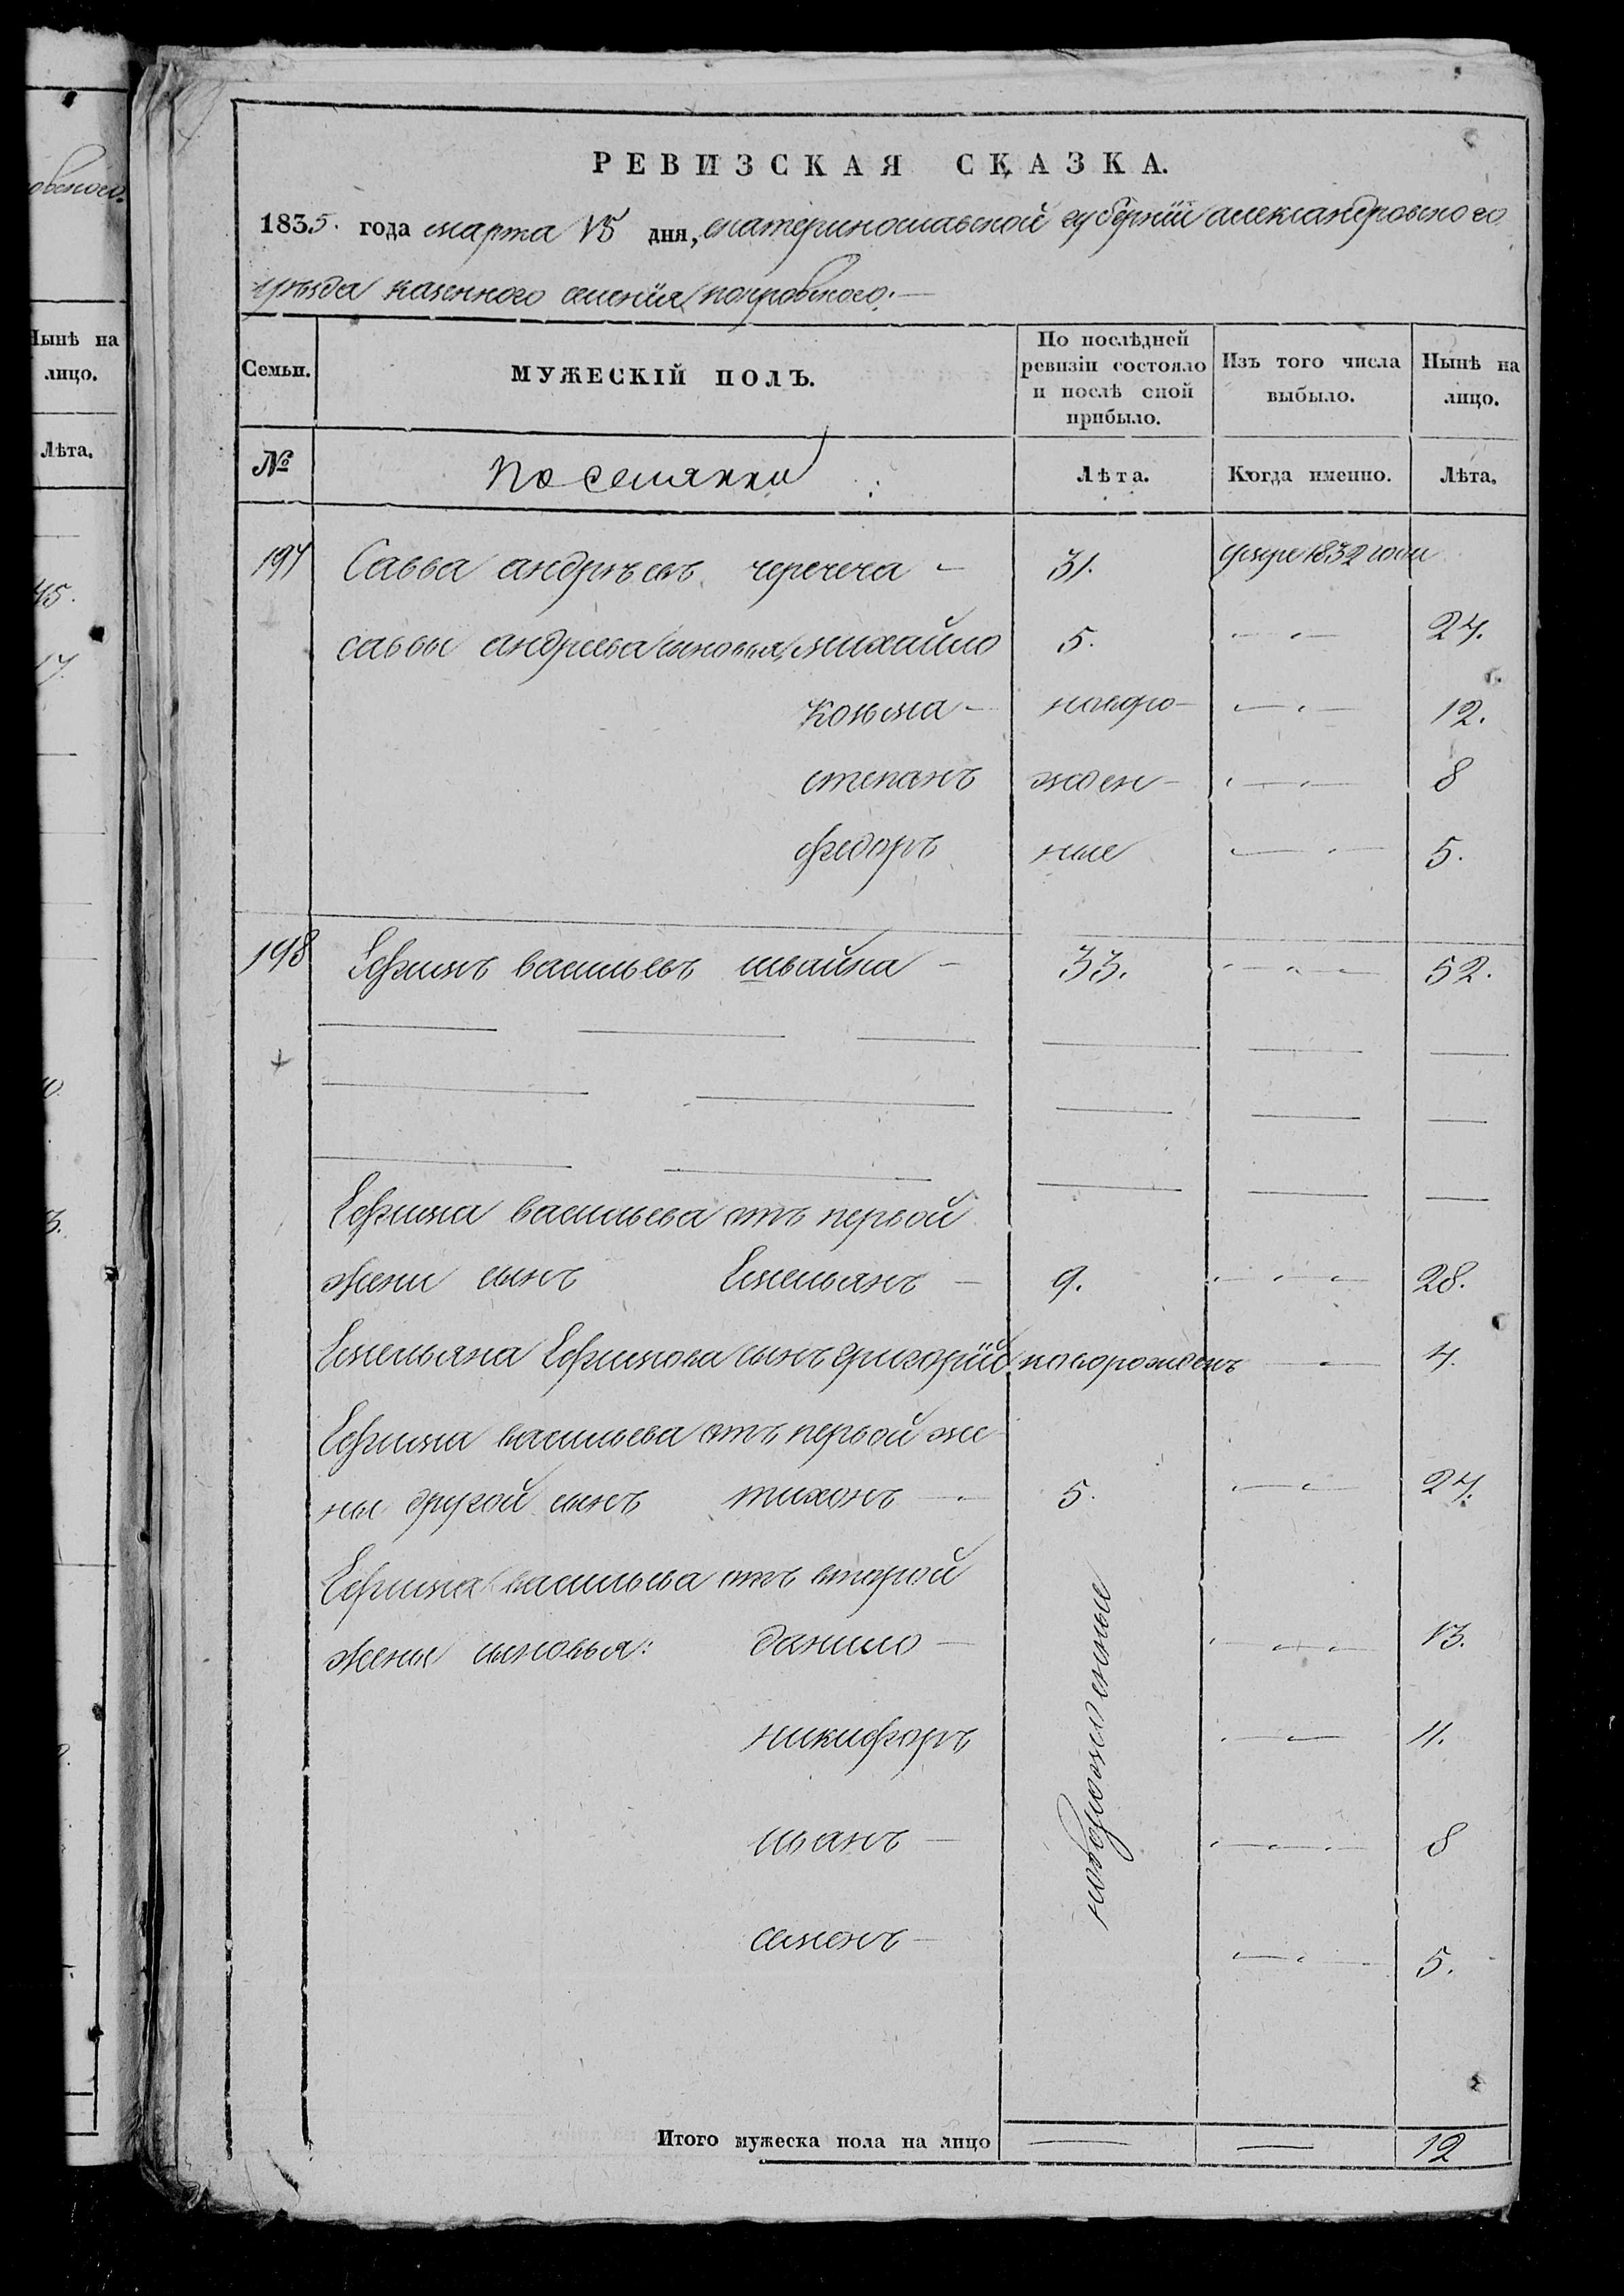 овского.
Нынѣ на
лицо.
Лѣта.
45.
17.
РЕВИЗСКАЯ СКАЗКА.
1835. года марта 15 дня, екатеринославской губернїи александровского
уѣзда казенного селенїя покровского.
Семьи.
МУЖЕСКІЙ ПОЛЪ.
По послѣдней ревизіи состояло и послѣ оной прибыло.
Изъ того числа выбыло.
Нынѣ на лицо.
№ поселянки Лѣта. Когда именно. Лѣта.
197 Савва андрѣевъ черечеча - 31. умре 1832 года
саввы андреева сыновья, михайло 5. — 24.
козьма - новоро- — 12.
степанъ жден- — 8
федоръ ные — 5.
198 Ефимъ васильевъ швайка - 33. — 52.
Ефима васильева отъ первой
жени сынъ Емельянъ - 9. — 28.
Емельяна Ефимова сынъ григорїй новорожденъ — 4.
Ефима васильева отъ первой же
ны другой сынъ тихонъ — 5. — 24.
Ефима васильева отъ второй
жены сыновья: данило — новорожденные — 13.
никифоръ — 11.
иванъ — 8
семенъ — 5.
Итого мужеска пола на лицо — — 12